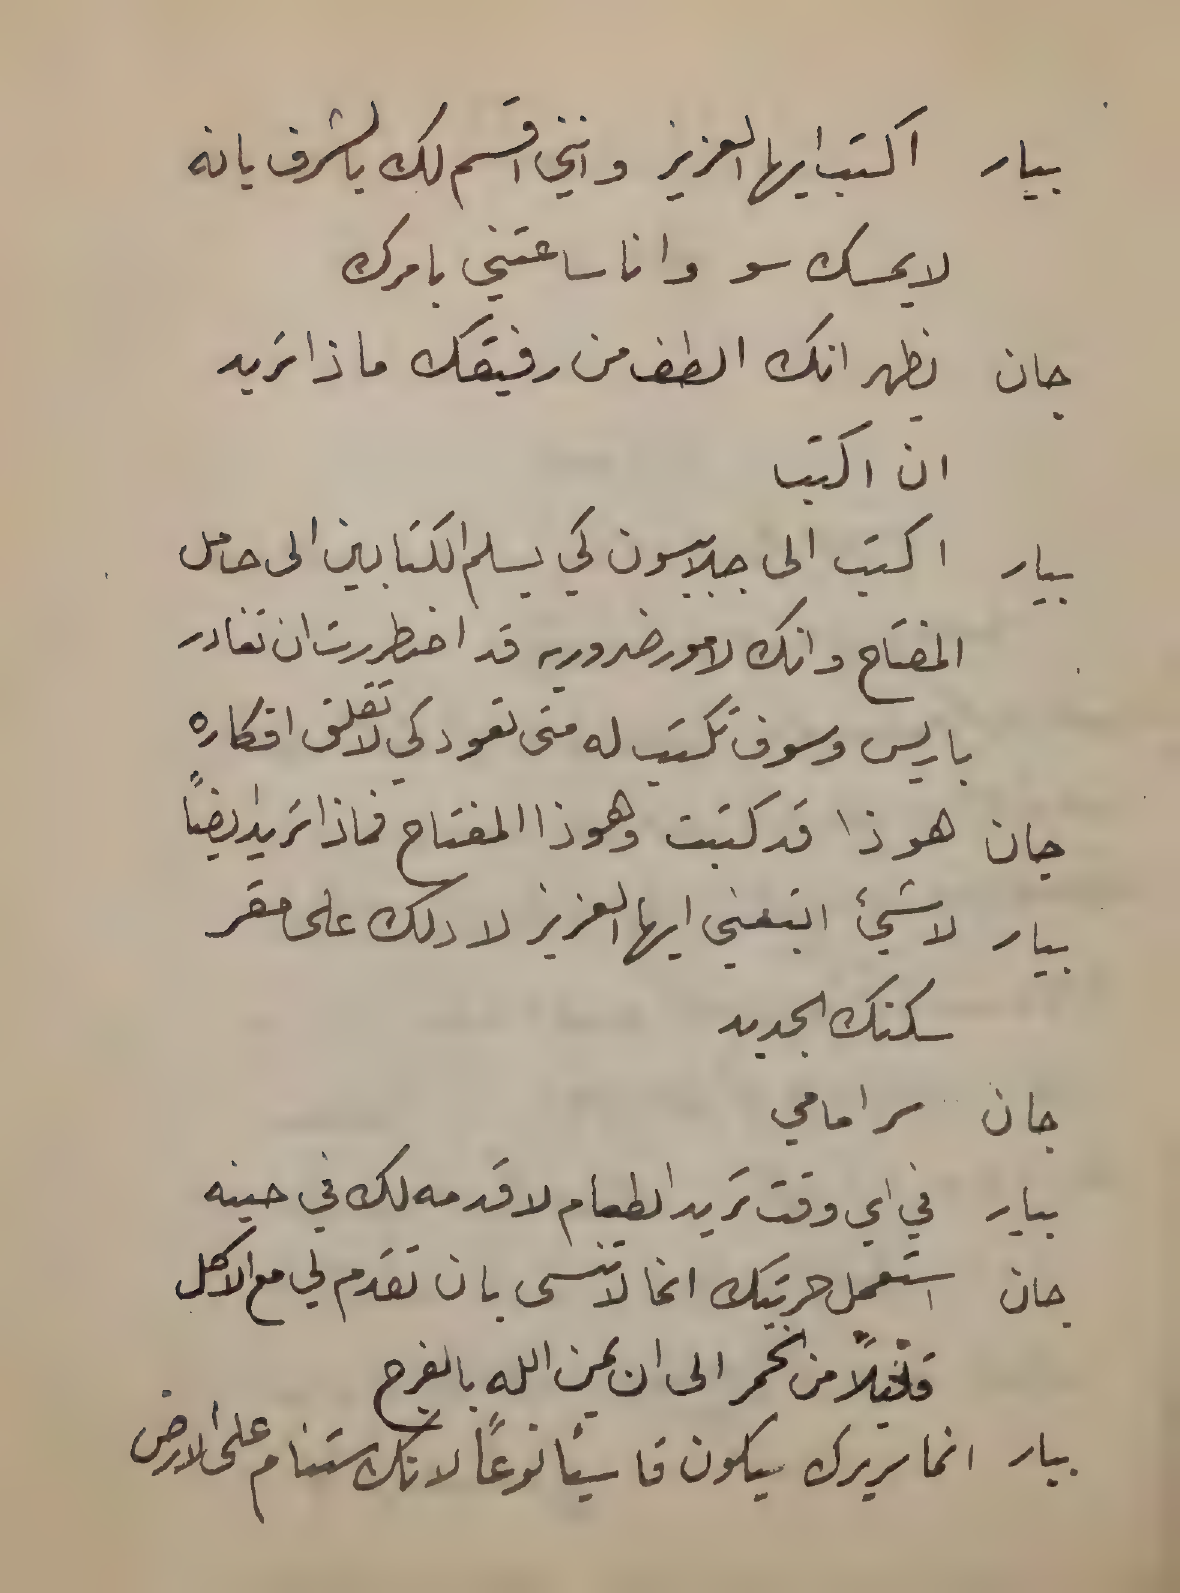 بيار اكتب ايها العزيز وانني اقسم لك بالشرف بانه
لا يمسك سو وانا ساعتني بامرك
جان يظهر انك الطف من رفيقك ماذا تريد
ان اكتب
بيار اكتب الى جلابسون كي يسلم الكتابين الى حامل
المفتاح وانك لامور ضروريه قد اضطررت ان تغادر
باريس وسوف تكتب له متى تعود كي لا تقلق افكاره
جان هوذا قد كتبت وهوذا المفتاح فماذا تريد ايضاً
بيار لا شيئ اتبعني ايها العزيز لادلك على مقر
سكنك الجديد
جان سر امامي
بيار في اي وقت تريد الطعام لاقدمه لك في حينه
جان استعمل حريتك انما لا تنسى بان تقدم لي مع الاكل
قليلاً من الخمر الى ان يمن الله بالفرج
بيار انما سريرك سيكون قاسياً نوعاً لانك ستنام على الارض